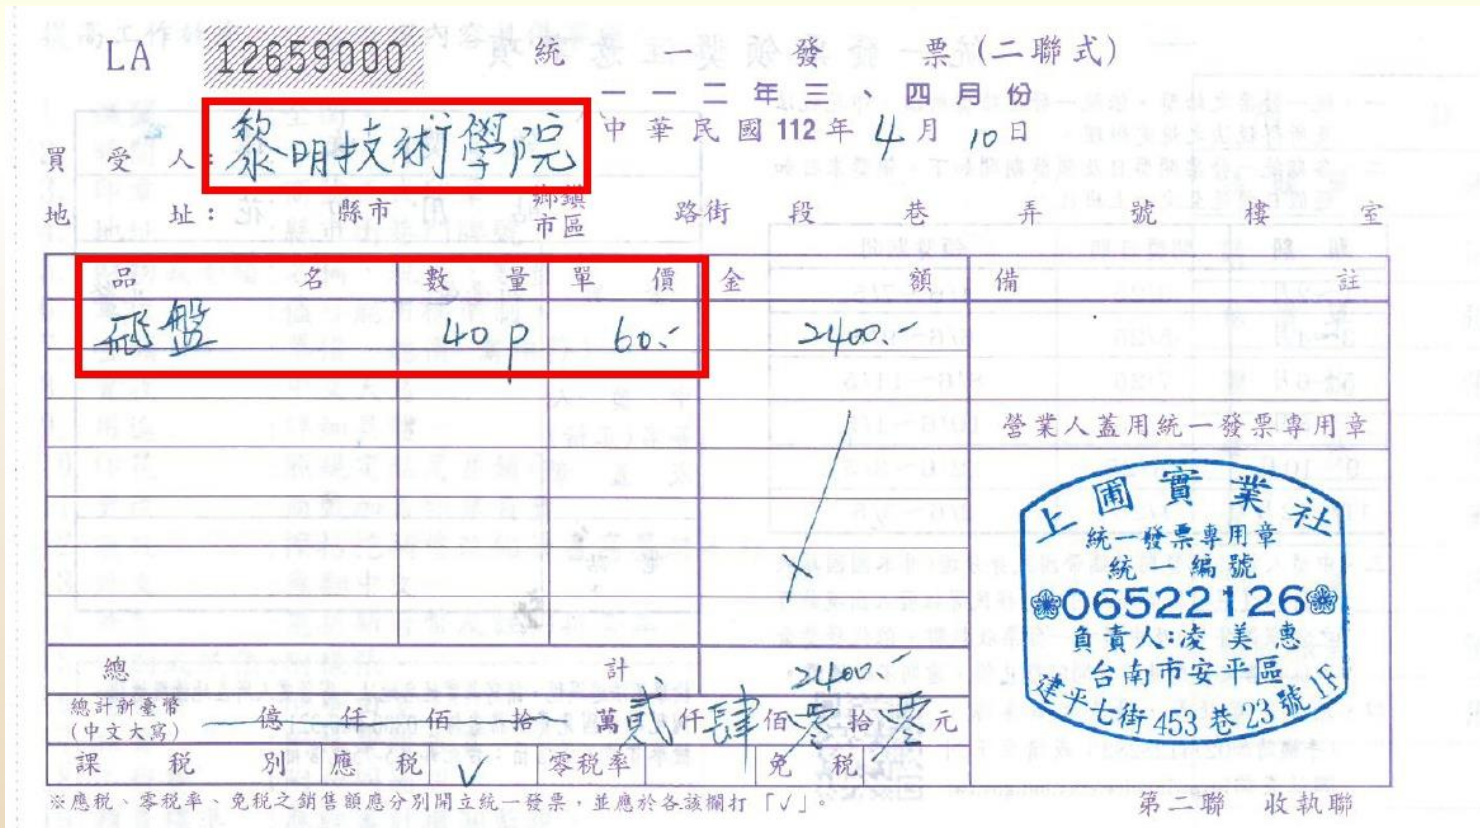 LA 12659000 統一發票(二聯式)
一一二年三、四月份
中華民國112年4月10日
買受人：黎明技術學院
地址： 縣市 鄉鎮市區 路街 段 巷 弄 號 樓 室
品名 數量 單價 金額 備註
飛盤 40P 60.- 2400.-
營業人蓋用統一發票專用章
上圃實業社
統一發票專用章
統一編號
06522126
負責人:凌美惠
台南市安平區
建平七街453巷23號1F
總計 2400.-
總計新臺幣(中文大寫) 億 仟 佰 拾 萬貳仟肆佰零拾零元
課稅別 應稅 √ 零稅率 免稅
※應稅、零稅率、免稅之銷售額應分別開立統一發票，並應於各該欄打「√」。
第二聯 收執聯